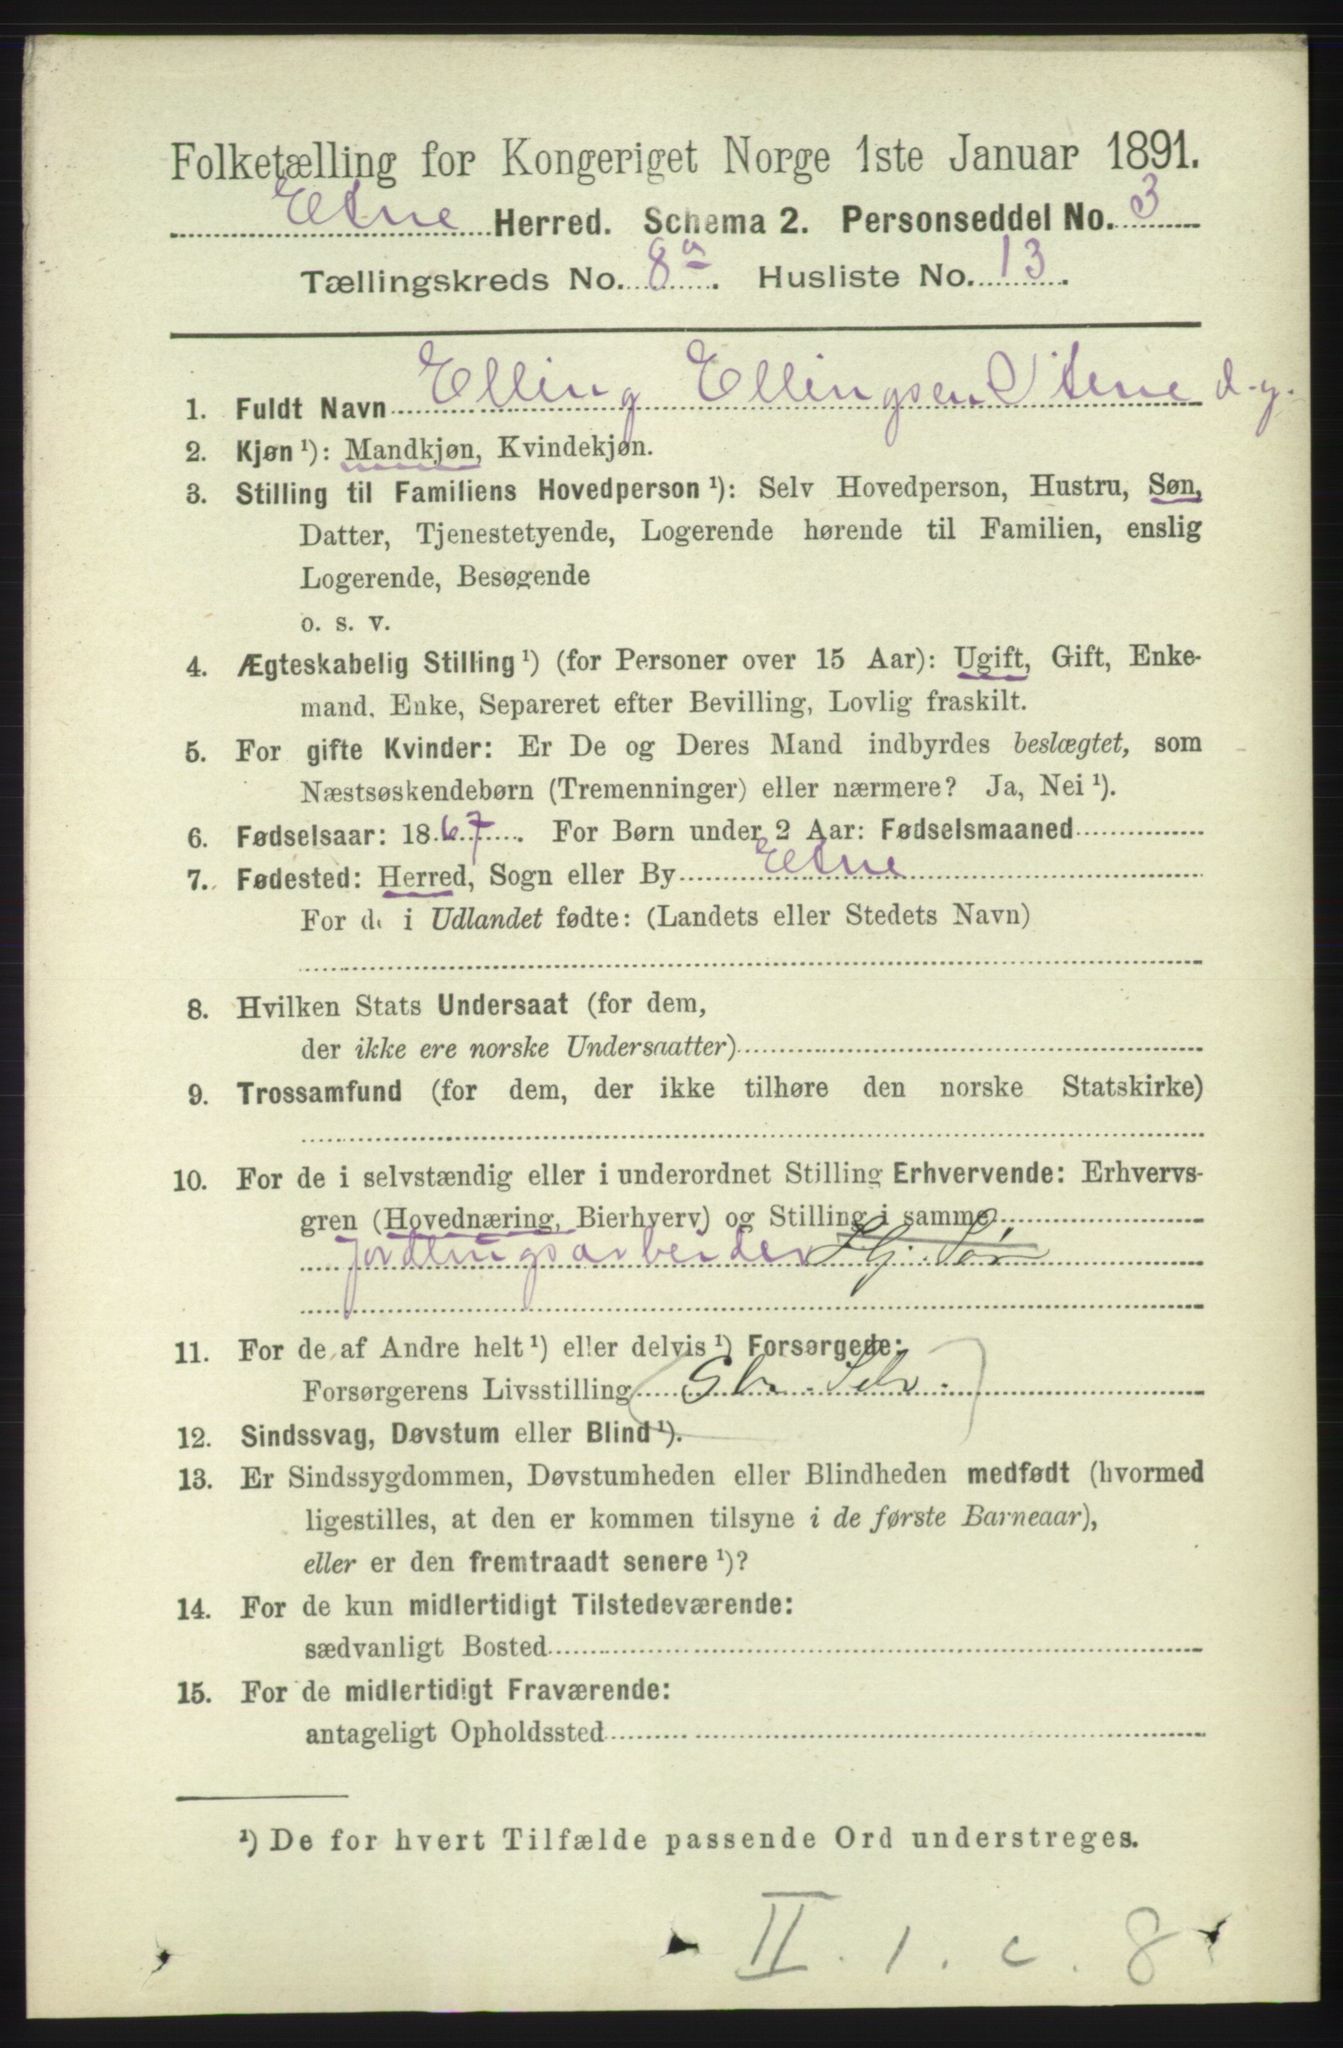 Folketælling for Kongeriget Norge 1ste Januar 1891.
Etne Herred. Schema 2. Personseddel No. 3
Tællingskreds No. 8a. Husliste No. 13.
1. Fuldt Navn Elling Ellingsen Stene d.y.
2. Kjøn ¹): Mandkjøn, Kvindekjøn.
3. Stilling til Familiens Hovedperson ¹): Selv Hovedperson, Hustru, Søn,
Datter, Tjenestetyende, Logerende hørende til Familien, enslig
Logerende, Besøgende
o. s. v.
4. Ægteskabelig Stilling ¹) (for Personer over 15 Aar): Ugift, Gift, Enke-
mand, Enke, Separeret efter Bevilling, Lovlig fraskilt.
5. For gifte Kvinder: Er De og Deres Mand indbyrdes beslægtet, som
Næstsøskendebørn (Tremenninger) eller nærmere? Ja, Nei ¹).
6. Fødselsaar: 1867. For Børn under 2 Aar: Fødselsmaaned
7. Fødested: Herred, Sogn eller By Etne
For de i Udlandet fødte: (Landets eller Stedets Navn)
8. Hvilken Stats Undersaat (for dem,
der ikke ere norske Undersaatter)
9. Trossamfund (for dem, der ikke tilhøre den norske Statskirke)
10. For de i selvstændig eller i underordnet Stilling Erhvervende: Erhvervs-
gren (Hovednæring, Bierhverv) og Stilling i samme
Hj. Søn
11. For de af Andre helt ¹) eller delvis ¹) Forsørgede:
Forsørgerens Livsstilling Gbr. Selv.
12. Sindssvag, Døvstum eller Blind ¹).
13. Er Sindssygdommen, Døvstumheden eller Blindheden medfødt (hvormed
ligestilles, at den er kommen tilsyne i de første Barneaar),
eller er den fremtraadt senere ¹)?
14. For de kun midlertidigt Tilstedeværende:
sædvanligt Bosted
15. For de midlertidigt Fraværende:
antageligt Opholdssted
¹) De for hvert Tilfælde passende Ord understreges.
II. 1. c. 8